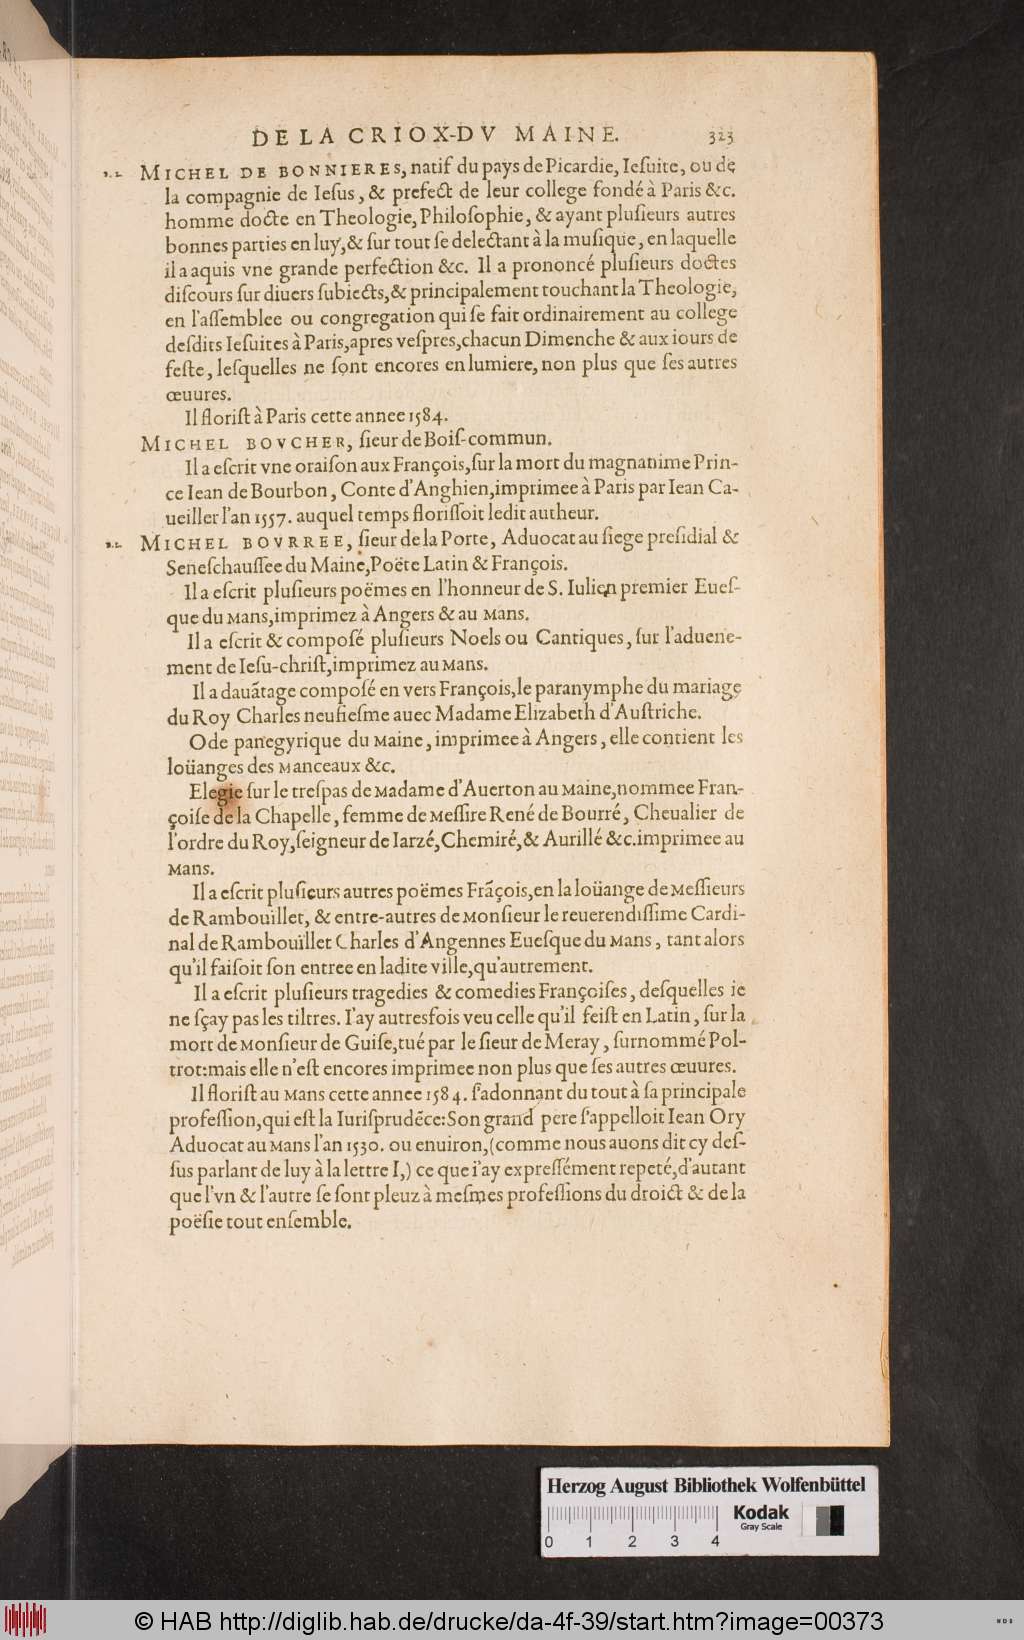 DE LA CRIOX-DV MAINE. 323
MICHEL DE BONNIERES, natif du pays de Picardie, Ieſuite, ou de
la compagnie de Ieſus, & prefect de leur college fondé à Paris &c.
homme docte en Theologie, Philoſophie, & ayant pluſieurs autres
bonnes parties en luy, & ſur tout ſe delectant à la muſique, en laquelle
il a aquis vne grande perfection &c. Il a prononcé pluſieurs doctes
diſcours ſur diuers ſubiects, & principalement touchant la Theologie,
en l'aſſemblee ou congregation qui ſe fait ordinairement au college
deſdits Ieſuites à Paris, apres veſpres, chacun Dimenche & aux iours de
feſte, leſquelles ne ſont encores en lumiere, non plus que ſes autres
œuures.
Il floriſt à Paris cette annee 1584.
MICHEL BOVCHER, ſieur de Boiſ-commun.
Il a eſcrit vne oraiſon aux François, ſur la mort du magnanime Prin-
ce Iean de Bourbon, Conte d'Anghien, imprimee à Paris par Iean Ca-
ueiller l'an 1557. auquel temps floriſſoit ledit autheur.
MICHEL BOVRREE, ſieur de la Porte, Aduocat au ſiege preſidial &
Seneſchauſſee du Maine, Poëte Latin & François.
Il a eſcrit pluſieurs poëmes en l'honneur de S. Iulien premier Eueſ-
que du Mans, imprimez à Angers & au Mans.
Il a eſcrit & compoſé pluſieurs Noels ou Cantiques, ſur l'aduene-
ment de Ieſu-chriſt, imprimez au Mans.
Il a dauãtage compoſé en vers François, le paranymphe du mariage
du Roy Charles neufieſme auec Madame Elizabeth d'Auſtriche.
Ode panegyrique du Maine, imprimee à Angers, elle contient les
loüanges des Manceaux &c.
Elegie ſur le treſpas de Madame d'Auerton au Maine, nommee Fran-
çoiſe de la Chapelle, femme de Meſſire René de Bourré, Cheualier de
l'ordre du Roy, ſeigneur de Iarzé, Chemiré, & Aurillé &c. imprimee au
Mans.
Il a eſcrit pluſieurs autres poëmes Frãçois, en la loüange de Meſſieurs
de Rambouillet, & entre-autres de Monſieur le reuerendiſſime Cardi-
nal de Rambouïllet Charles d'Angennes Eueſque du Mans, tant alors
qu'il faiſoit ſon entree en ladite ville, qu'autrement.
Il a eſcrit pluſieurs tragedies & comedies Françoiſes, deſquelles ie
ne ſçay pas les tiltres. I'ay autresfois veu celle qu'il feiſt en Latin, ſur la
mort de Monſieur de Guiſe, tué par le ſieur de Meray, ſurnommé Pol-
trot: mais elle n'eſt encores imprimee non plus que ſes autres œuures.
Il floriſt au Mans cette annee 1584. ſ'adonnant du tout à ſa principale
profeſſion, qui eſt la Iuriſprudẽce: Son grand pere ſ'appelloit Iean Ory
Aduocat au Mans l'an 1530. ou enuiron, (comme nous auons dit cy deſ-
ſus parlant de luy à la lettre I,) ce que i'ay expreſſément repeté, d'autant
que l'vn & l'autre ſe ſont pleuz à meſmes profeſſions du droict & de la
poëſie tout enſemble.
Herzog August Bibliothek Wolfenbüttel
Kodak
Gray Scale
0 1 2 3 4
© HAB http://diglib.hab.de/drucke/da-4f-39/start.htm?image=00373